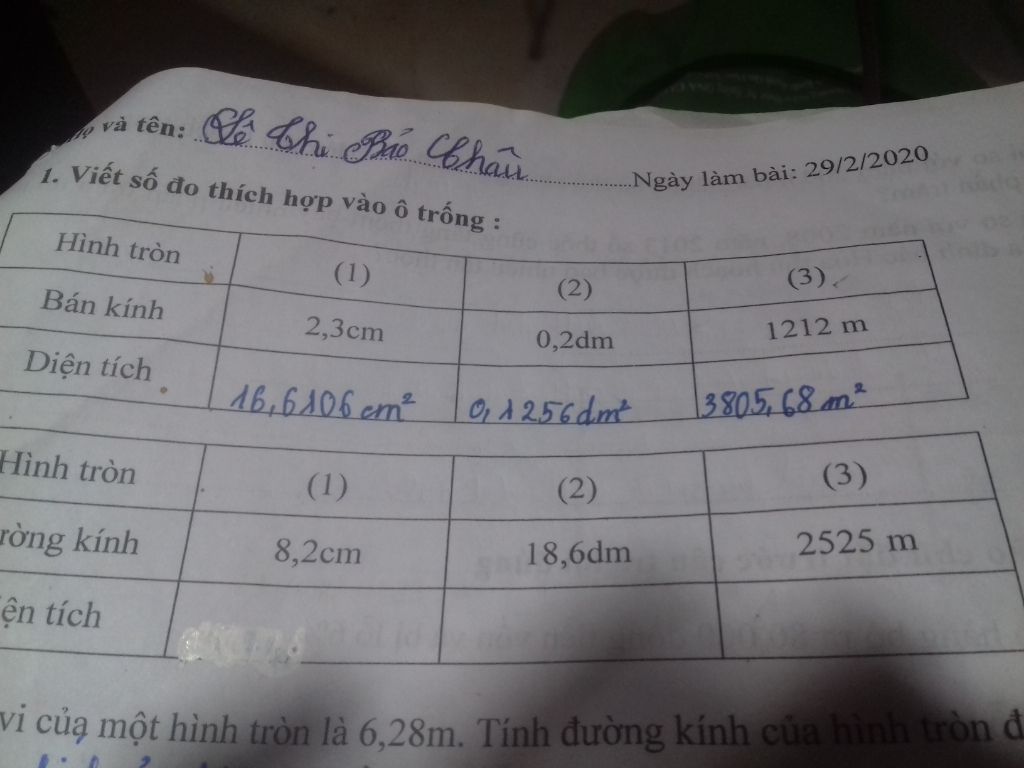 Họ và tên: Lê Thi Bảo Châu Ngày làm bài: 29/2/2020
1. Viết số đo thích hợp vào ô trống :
Hình tròn (1) (2) (3)
Bán kính 2,3cm 0,2dm 1212 m
Diện tích 16,6106 cm² 0,1256dm² 3805,68 m²
Hình tròn (1) (2) (3)
ường kính 8,2cm 18,6dm 2525 m
ện tích
vi của một hình tròn là 6,28m. Tính đường kính của hình tròn đ